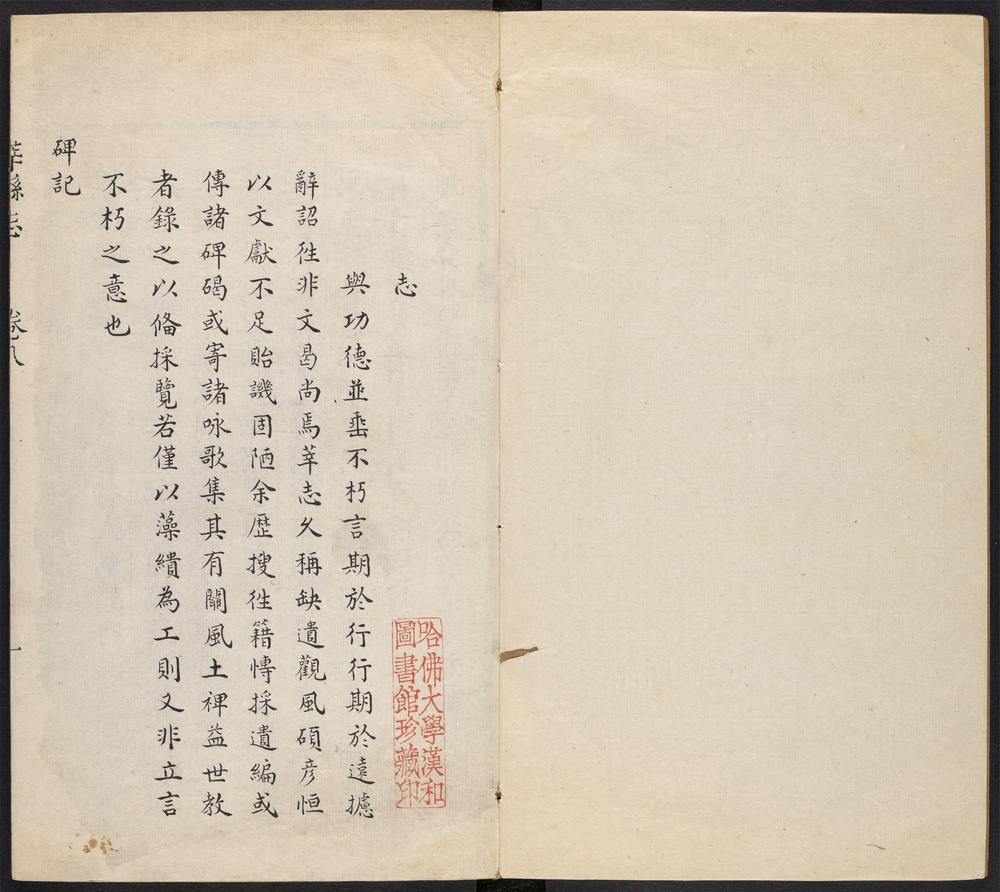 哈佛大學漢和
圖書館珍藏印
志
與功德並垂不朽言期於行行期於遠攄
辭詔徃非文曷尚焉莘志久稱缺遺觀風碩彦恒
以文獻不足貽譏固陋余歷搜徃籍慱採遺編或
傳諸碑碣或寄諸咏歌集其有關風土裨益世教
者錄之以俻採覽若僅以藻繢為工則又非立言
不朽之意也
碑記
莘縣志 卷八 一